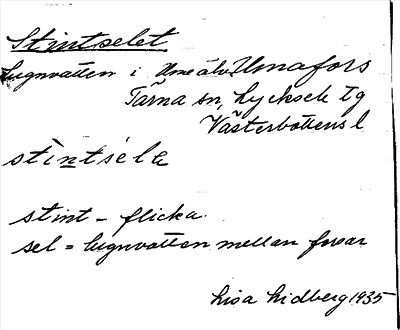 Stintselet
Lugnvatten i Ume älv Umafors
Tärna sn, Lycksele tg
Västerbottens l
stìntsèla
stint – flicka.
sel = lugnvatten mellan forsar
Lisa Lidberg 1935